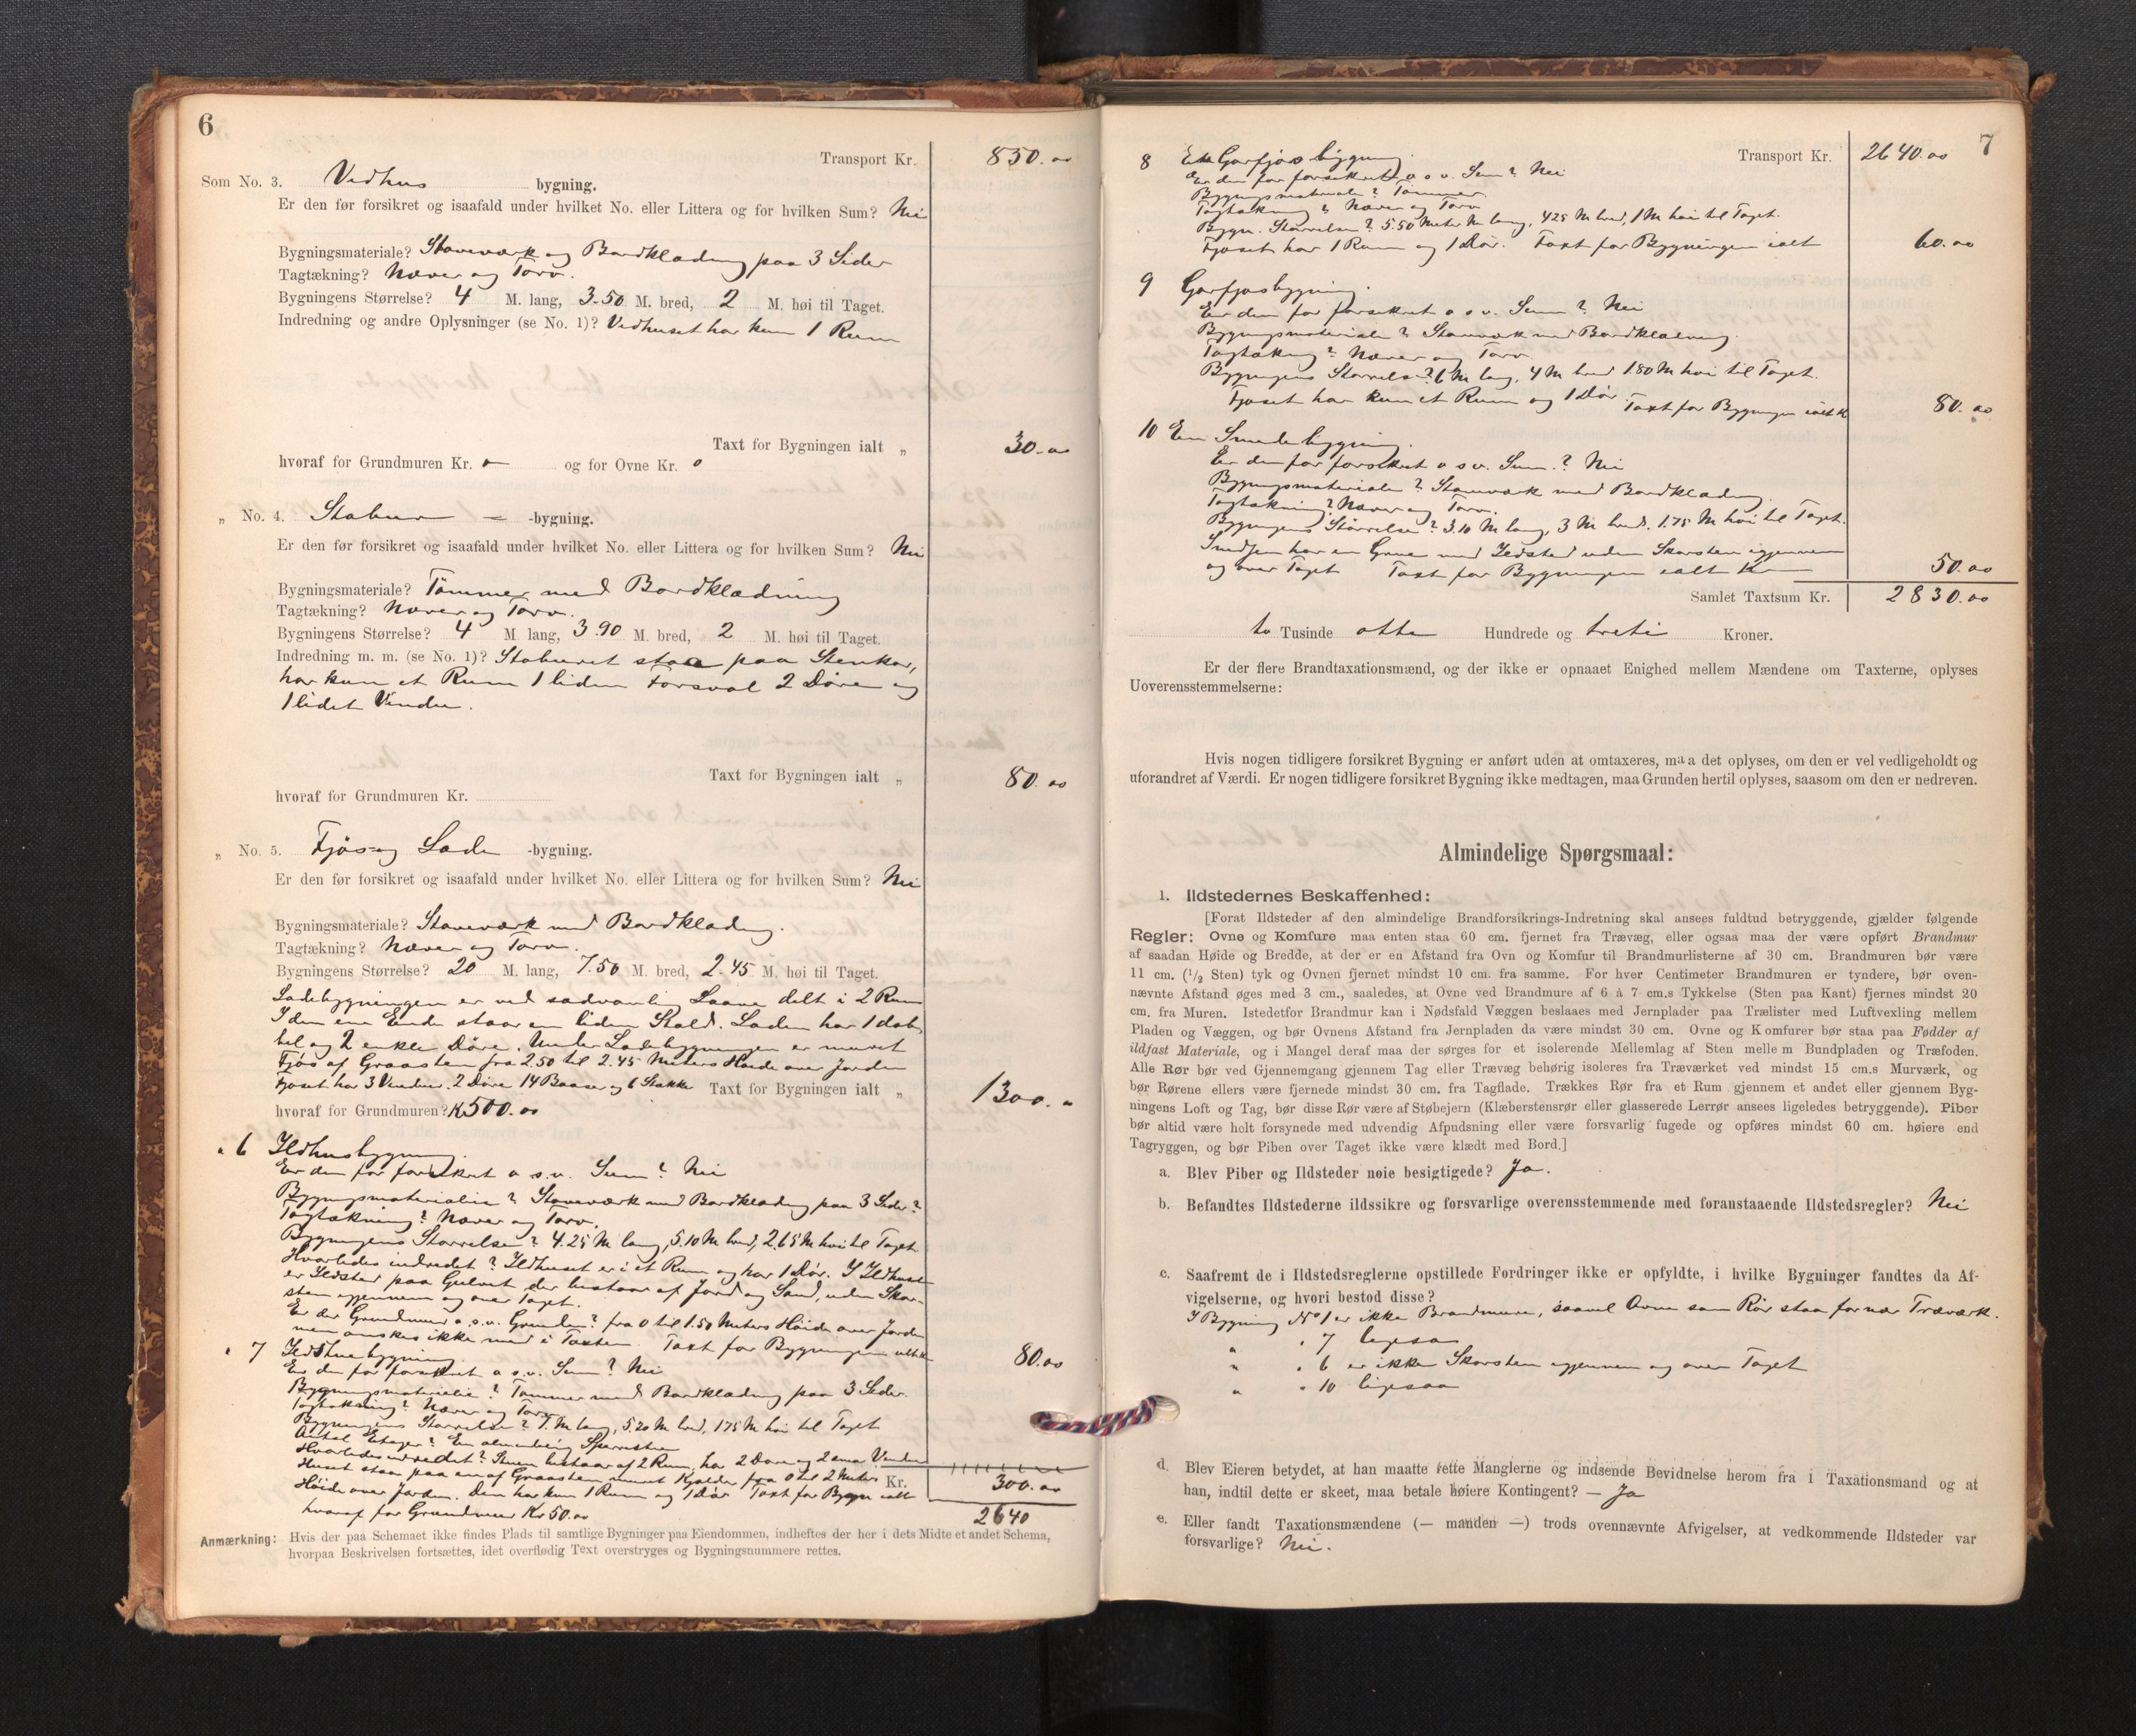 6
Transport Kr. 850.00
Som No. 3. Vedhus bygning.
Er den før forsikret og isaafald under hvilket No. eller Littera og for hvilken Sum? Nei
Bygningsmateriale? Staveværk og Bordklædning paa 3 Sider
Tagtækning? Næver og Torv.
Bygningens Størrelse? 4 M. lang, 3.50 M. bred, 2 M. høi til Taget.
Indredning og andre Oplysninger (se No. 1)? Vedhuset har kun 1 Rum
Taxt for Bygningen ialt „ 30.00
hvoraf for Grundmuren Kr. o og for Ovne Kr. o
„ No. 4. Stabur -bygning.
Er den før forsikret og isaafald under hvilket No. eller Littera og for hvilken Sum? Nei
Bygningsmateriale? Tømmer med Bordklædning
Tagtækning? Næver og Torv.
Bygningens Størrelse? 4 M. lang, 3.90 M. bred, 2 M. høi til Taget.
Indredning m. m. (se No. 1)? Staburet staa paa Stenkar,
har kun et Rum 1 liden Forsval 2 Døre og
1 lidet Vindu.
Taxt for Bygningen ialt „ 80.00
hvoraf for Grundmuren Kr.
„ No. 5. Fjøs og Lade -bygning.
Er den før forsikret og isaafald under hvilket No. eller Littera og for hvilken Sum? Nei
Bygningsmateriale? Staveværk med Bordklædng.
Tagtækning? Næver og Torv.
Bygningens Størrelse? 20 M. lang, 7.50 M. bred, 2.45 M. høi til Taget.
Ladebygningen er ved sædvanlig Laave delt i 2 Rum
I den ene Ende staar en liden Stald. Laden har 1 dob-
bel og 2 enkle Døre. Under Ladebygningen er muret
Fjøs af Graasten fra 2.50 til 2.45 Meters Høide over Jorden
Fjøset har 3 Vinduer 2 Døre 14 Baase og 6 Stakke Taxt for Bygningen ialt „ 1300.
hvoraf for Grundmuren? K 500.00
„ 6 Ildhusbygning.
Er den før forsikret o.s.v. Sum? Nei
Bygningsmateriale? Staveværk med Bordklædng paa 3 Sider?
Tagtækning? Næver og Torv.
Bygningens Størrelse? 4.25 M lang, 5.10 M bred, 2.65 M høi til Taget
Hvorledes indredet? Ildhuset er i et Rum og har 1 Dør. I Ildhuset
er Ildsted paa Gulvet der bestaar af Jord og Sand, uden Skor-
sten igjennem og over Taget.
Er der Grundmur o.s.v. Grunden? fra 0 til 1.50 Meters Høide over Jorden
men ønskes ikke med i Taxten. Taxt for Bygningen ialt K 80.00
„ 7 Ildstuebygning
Er den før forsikret o.s.v. Sum? Nei
Bygningsmateriale? Tømmer med Bordklædng paa 3 Sider.
Tagtækning? Næver og Torv
Bygningens Størrelse? 7. M lang, 5.20 M bred, 1.75 M høi til Taget
Antal Etager? En almindelig Sperrestue
Hvorledes indredet? Stuen bestaar af 2 Rum, har 2 Døre og 2 smaa Vinduer
Huset staa paa en af Graasten muret Kjælder fra 0 til 2 Meters
Kr. 300.00
Høide over Jorden. Den har kun 1 Rum og 1 Dør Taxt for Bygn ialt
hvoraf for Grundmur Kr 50.00 2640
Anmærkning: Hvis der paa Schemaet ikke findes Plads til samtlige Bygninger paa Eiendommen, indheftes der her i dets Midte et andet Schema,
hvorpaa Beskrivelsen fortsættes, idet overflødig Text overstryges og Bygningsnummere rettes.
7
Transport Kr. 2640.00
8 Garfjøsbygning.
Er den før forsikret o s v. Sum? Nei
Bygningsmateriale? Tømmer.
Tagtækning? Næver og Torv
Bygn. Størrelse? 5.50 Meter M lang, 4.25 M bred, 1 M høi til Taget.
Fjøset har 1 Rum og 1 Dør. Taxt for Bygningen ialt 60.00
9 Garfjøsbygning.
Er den før forsikret o s v. Sum? Nei
Bygningsmateriale? Staveværk med Bordklædning.
Tagtækng? Næver og Torv
Bygningens Størrelse? 6 M lang, 4 M bred 1.80 M høi til Taget.
Fjøset har kun et Rum og 1 Dør Taxt for Bygningen ialt K 80.00
10 En Smedebygning.
Er den før forsikret o s v. Sum.? Nei
Bygningsmateriale? Staveværk med Bordklædng.
Tagtækning? Næver og Torv.
Bygningens Størrelse? 3.10 M lang, 3 M bred. 1.75 M høi til Taget.
Smedjen har en Grue med Ildsted uden Skorsten igjennem
og over Taget Taxt for Bygningen ialt K 50.00
Samlet Taxtsum Kr. 2830.00
to Tusinde otte Hundrede og treti Kroner.
Er der flere Brandtaxationsmænd, og der ikke er opnaaet Enighed mellem Mændene om Taxterne, oplyses
Uoverensstemmelserne:
Hvis nogen tidligere forsikret Bygning er anført uden at omtaxeres, maa det oplyses, om den er vel vedligeholdt og
uforandret af Værdi. Er nogen tidligere forsikret Bygning ikke medtagen, maa Grunden hertil oplyses, saasom om den er nedreven.
Almindelige Spørgsmaal:
1. Ildstedernes Beskaffenhed:
[Forat Ildsteder af den almindelige Brandforsikrings-Indretning skal ansees fuldtud betryggende, gjælder følgende
Regler: Ovne og Komfure maa enten staa 60 cm. fjernet fra Trævæg, eller ogsaa maa der være opført Brandmur
af saadan Høide og Bredde, at der er en Afstand fra Ovn og Komfur til Brandmurlisterne af 30 cm. Brandmuren bør være
11 cm. (1/2 Sten) tyk og Ovnen fjernet mindst 10 cm. fra samme. For hver Centimeter Brandmuren er tyndere, bør oven-
nævnte Afstand øges med 3 cm., saaledes, at Ovne ved Brandmure af 6 à 7 cm.s Tykkelse (Sten paa Kant) fjernes mindst 20
cm. fra Muren. Istedetfor Brandmur kan i Nødsfald Væggen beslaaes med Jernplader paa Trælister med Luftvexling mellem
Pladen og Væggen, og bør Ovnens Afstand fra Jernpladen da være mindst 30 cm. Ovne og Komfurer bør staa paa Fødder af
ildfast Materiale, og i Mangel deraf maa der sørges for et isolerende Mellemlag af Sten mellem Bundpladen og Træfoden.
Alle Rør bør ved Gjennemgang gjennem Tag eller Trævæg behørig isoleres fra Træværket ved mindst 15 cm.s Murværk, og
bør Rørene ellers være fjernede mindst 30 cm. fra Tagflade. Trækkes Rør fra et Rum gjennem et andet eller gjennem Byg-
ningens Loft og Tag, bør disse Rør være af Støbejern (Klæberstensrør eller glasserede Lerrør ansees ligeledes betryggende). Piber
bør altid være helt forsynede med udvendig Afpudsning eller være forsvarlig fugede og opføres mindst 60 cm. høiere end
Tagryggen, og bør Piben over Taget ikke være klædt med Bord.]
a. Blev Piber og Ildsteder nøie besigtigede? Ja.
b. Befandtes Ildstederne ildssikre og forsvarlige overensstemmende med foranstaaende Ildstedsregler? Nei
c. Saafremt de i Ildstedsreglerne opstillede Fordringer ikke er opfyldte, i hvilke Bygninger fandtes da Af-
vigelserne, og hvori bestod disse?
I Bygning No 1 er ikke Brandmure, saavel Ovne som Rør staa for nær Træværk.
„ „ 7 ligesaa
„ „ 6 er ikke Skorsten igjennem og over Taget
„ „ 10 ligesaa
d. Blev Eieren betydet, at han maatte rette Manglerne og indsende Bevidnelse herom fra 1 Taxationsmand og at
han, indtil dette er skeet, maa betale høiere Kontingent? — Ja
e. Eller fandt Taxationsmændene (— manden —) trods ovennævnte Afvigelser, at vedkommende Ildsteder var
forsvarlige? Nei.